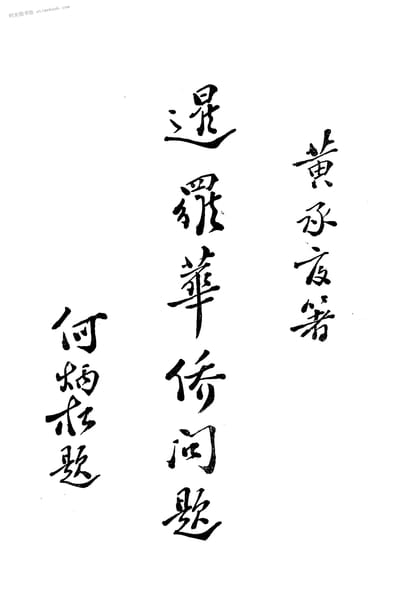 黃承度箸
暹羅華僑問題
何炳松題